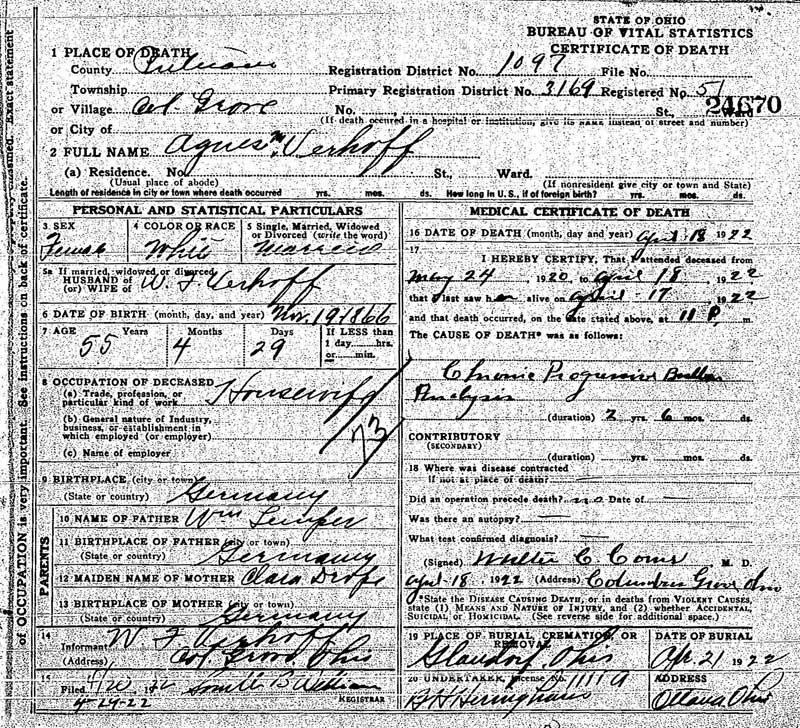 STATE OF OHIO
BUREAU OF VITAL STATISTICS
CERTIFICATE OF DEATH
1 PLACE OF DEATH
County Putnam Registration District No. 1097 File No.
Township Primary Registration District No. 3169 Registered No. 51
24670
or Village Col. Grove No. St., Ward
(If death occured in a hospital or institution, give its NAME instead of street and number)
or City of
2 FULL NAME Agnes M. Verhoff
(a) Residence. No. St., Ward.
(Usual place of abode) (If nonresident give city or town and State)
Length of residence in city or town where death occurred yrs. mos. ds. How long in U.S., if of foreign birth? yrs. mos. ds.
PERSONAL AND STATISTICAL PARTICULARS
3 SEX
Female
4 COLOR OR RACE
White
5 Single, Married, Widowed
or Divorced (write the word)
Married
5a If married, widowed or divorced
HUSBAND of
(or) WIFE of W. F. Verhoff
6 DATE OF BIRTH (month, day, and year) Nov. 19, 1866
7 AGE Years Months Days If LESS than
1 day......hrs.
or......min.
55 4 29
8 OCCUPATION OF DECEASED
(a) Trade, profession, or
particular kind of work Housewife
(b) General nature of Industry,
business, or establishment in
which employed (or employer)
(c) Name of employer
73
9 BIRTHPLACE (city or town)
(State or country) Germany
PARENTS
10 NAME OF FATHER Wm
11 BIRTHPLACE OF FATHER (city or town)
(State or country) Germany
12 MAIDEN NAME OF MOTHER Clara
13 BIRTHPLACE OF MOTHER (city or town)
(State or country) Germany
14
Informant W F Verhoff
(Address) Col. Grove, Ohio
15
Filed 4/20, 1922
4-24-22 REGISTRAR
MEDICAL CERTIFICATE OF DEATH
16 DATE OF DEATH (month, day and year) April 18 1922
17
I HEREBY CERTIFY, That I attended deceased from
May 24, 1920, to April 18, 1922
that I last saw her alive on April 17, 1922
and that death occurred, on the date stated above, at 11 P. m.
The CAUSE OF DEATH* was as follows:
Chronic Progressive Bulbar
Paralysis
(duration) 2 yrs. 6 mos. ds.
CONTRIBUTORY
(SECONDARY)
(duration) yrs. mos. ds.
18 Where was disease contracted
if not at place of death?
Did an operation precede death? no Date of
Was there an autopsy?
What test confirmed diagnosis?
(Signed) Walter C. M. D.
April 18, 1922 (Address) Columbus Grove Ohio
*State the DISEASE CAUSING DEATH, or in deaths from VIOLENT CAUSES,
state (1) MEANS AND NATURE OF INJURY, and (2) whether ACCIDENTAL,
SUICIDAL or HOMICIDAL. (See reverse side for additional space.)
19 PLACE OF BURIAL, CREMATION, OR
REMOVAL
Glandorf, Ohio
DATE OF BURIAL
Apr. 21 1922
20 UNDERTAKER, License No. 1111 A
ADDRESS
Ottawa, Ohio
classified. Exact statement
of OCCUPATION is very important. See instructions on back of certificate.